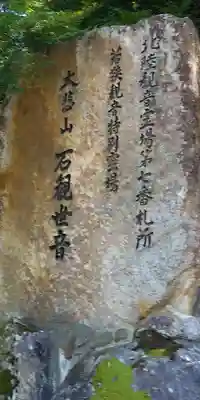 北陸観音霊場第七番札所
若狭観音特別霊場
大悲山 石観世音